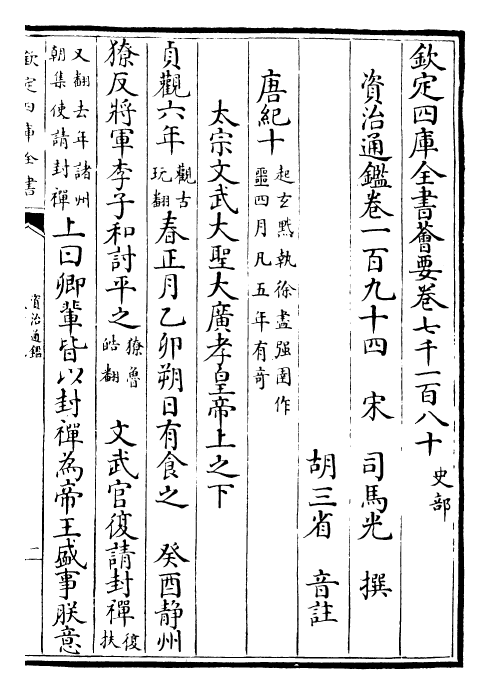 欽定四庫全書薈要卷七千一百八十 史部
資治通鑑卷一百九十四 宋 司馬光 撰
胡三省 音註
唐紀十 起玄黓執徐盡强圉作
噩四月凡五年有奇
太宗文武大聖大廣孝皇帝上之下
貞觀六年 觀古
玩翻 春正月乙卯朔日有食之 癸酉静州
獠反將軍李子和討平之 獠魯
皓翻 文武官復請封禪 復
扶
又翻去年諸州
朝集使請封禪 上曰卿輩皆以封禪為帝王盛事朕意
欽定四庫全書
資治通鑑